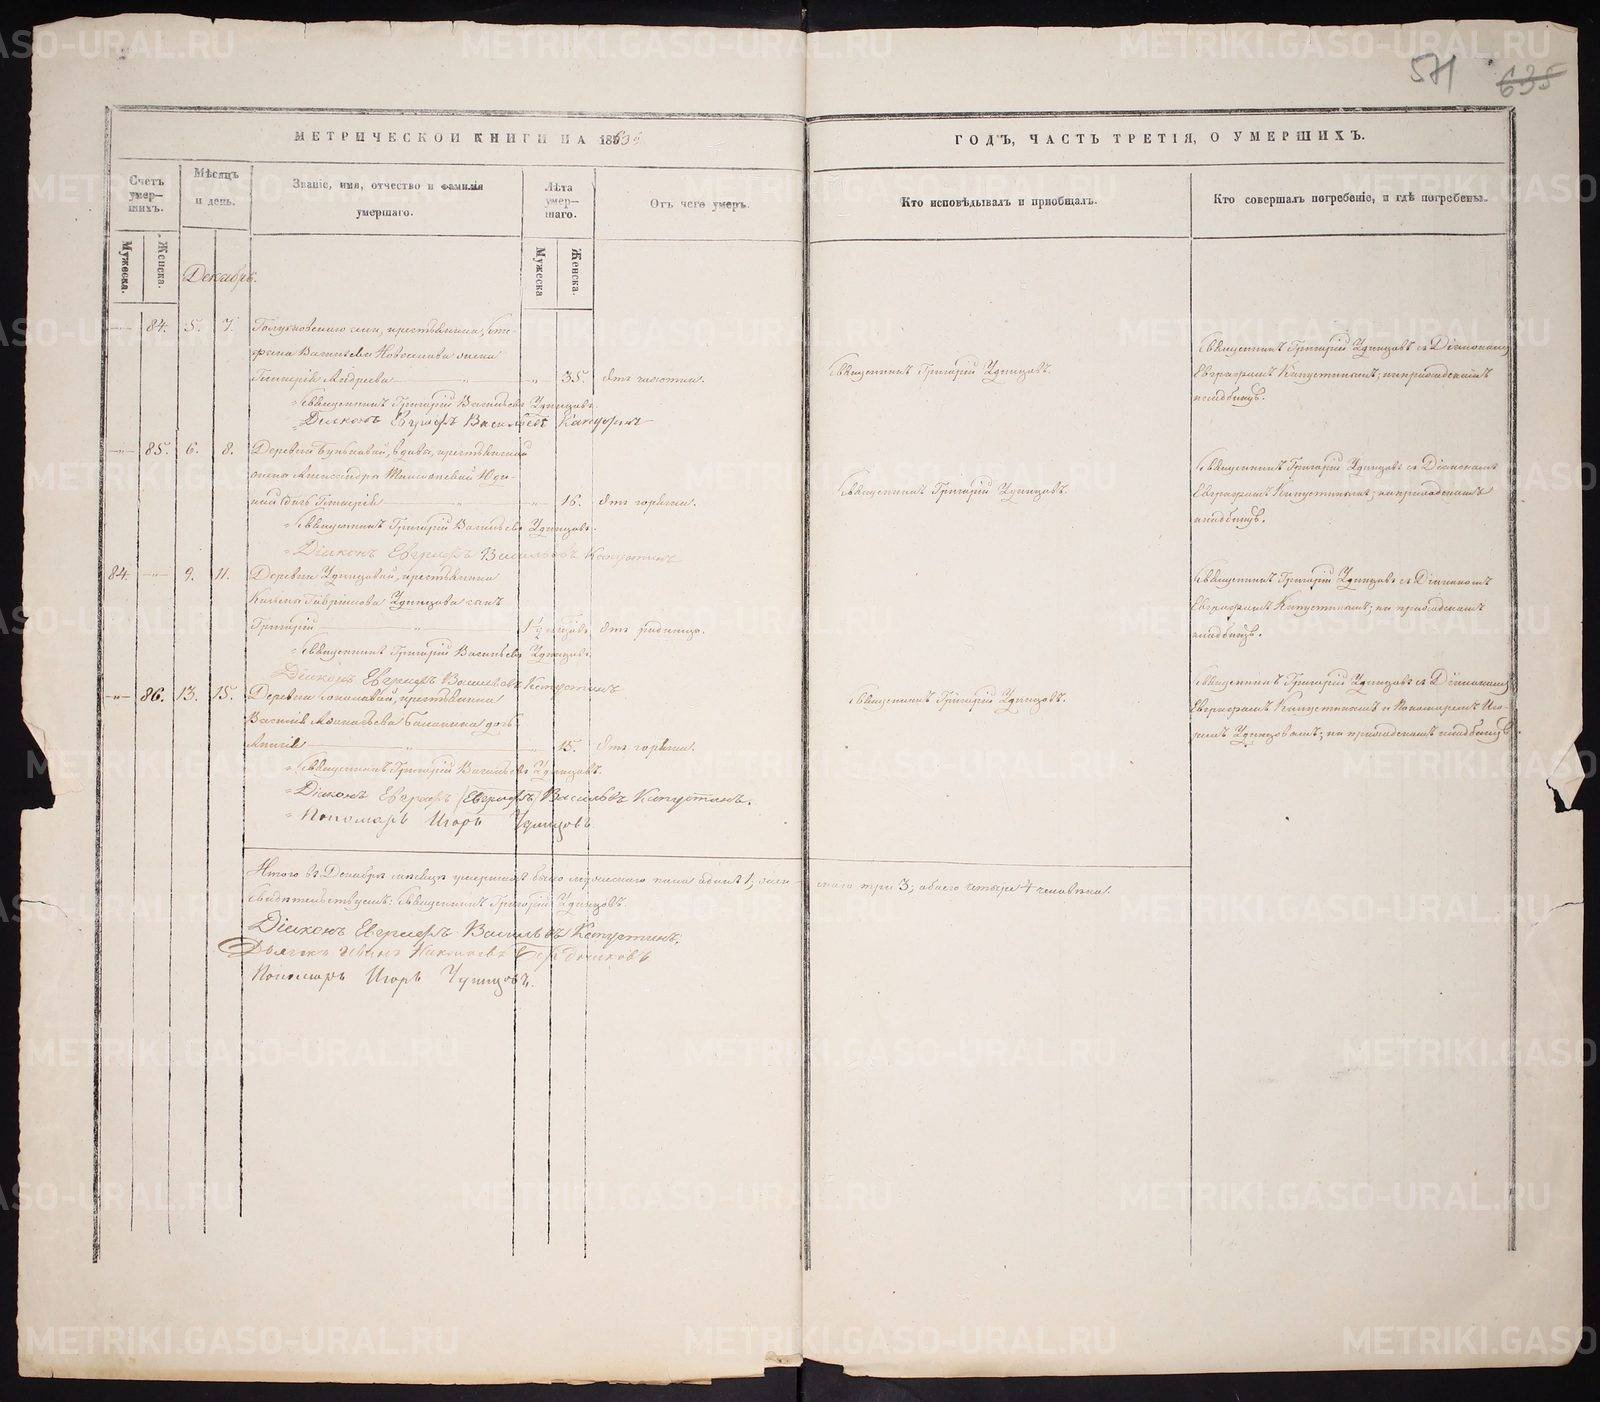 571 635
МЕТРИЧЕСКОИ КНИГИ НА 1863й
ГОДЪ, ЧАСТЬ ТРЕТІЯ, О УМЕРШИХЪ.
Счетъ умер-шихъ.
Мѣсяцъ и день.
Званіе, имя, отчество и фамилія умершаго.
Лѣта умер-шаго.
Отъ чего умеръ.
Кто исповѣдывалъ и пріобщалъ.
Кто совершалъ погребеніе, и гдѣ погребены.
Мужеска.
Женска.
Мужеска
Женска.
Декабрь.
84. 5. 7.
Васильева Новоселова жена
Гликерія Андреева 35. Отъ чахотки.
Священникъ Григорій Удинцовъ.
Священникъ Григорій Удинцовъ съ Діакономъ
Евграфомъ Капустинымъ; на приходскомъ
кладбищѣ.
Священникъ Григорій Васильевъ Удинцовъ.
Діаконъ Евграфъ Васильевъ Капустинъ
85. 6. 8.
дочь Гликерія 16. Отъ горячки.
Священникъ Григорій Удинцовъ.
Священникъ Григорій Удинцовъ съ Діакономъ
Евграфомъ Капустинымъ; на приходскомъ
кладбищѣ.
Священникъ Григорій Васильевъ Удинцовъ.
Діаконъ Евграфъ Васильевъ Капустинъ
84 9. 11. Деревни Удинцовой, крестьянина
Гаврилова Удинцова сынъ
Григорій Отъ родимца.
Священникъ Григорій Удинцовъ съ Діакономъ
Евграфомъ Капустинымъ; на приходскомъ
кладбищѣ.
Священникъ Григорій Васильевъ Удинцовъ.
Діаконъ Евграфъ Васильевъ Капустинъ
86. 13. 15. Деревни Соколовой, крестьянина
дочь
15. Отъ горячки.
Священникъ Григорій Удинцовъ.
Священникъ Григорій Удинцовъ съ Діакономъ
Евграфомъ Капустинымъ и Пономаремъ Иго-
ремъ Удинцовымъ; на приходскомъ кладбищѣ.
Священникъ Григорій Васильевъ Удинцовъ.
Діаконъ Евграфъ (Евграфъ) Васильевъ Капустинъ.
Пономарь Игорь Удинцовъ
Итого въ Декабрѣ мѣсяцѣ умершихъ было мужескаго пола одинъ 1; жен-скаго три 3; обоего четыре 4 человѣка.
Свидѣтельствуемъ: Священникъ Григорій Удинцовъ.
Діаконъ Евграфъ Васильевъ Капустинъ,
Дьячекъ Иванъ Николаевъ
Пономарь Игорь Удинцовъ.
METRIKI.GASO-URAL.RU